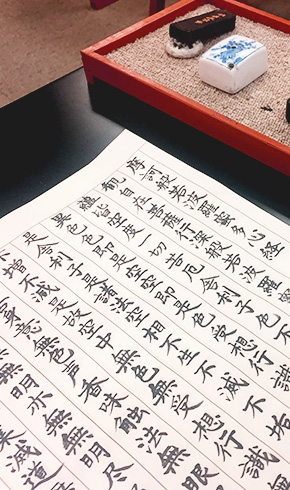 摩訶般若波羅蜜多心経
観自在菩薩行深般若波羅
蘊皆空度一切苦厄舍利子色不
異色色即是空空即是色受想行識
是舍利子是諸法空相不生不滅不垢
増不減是故空中無色無受想行識
身意無色声香味触法無眼
無明亦無無明尽
滅道